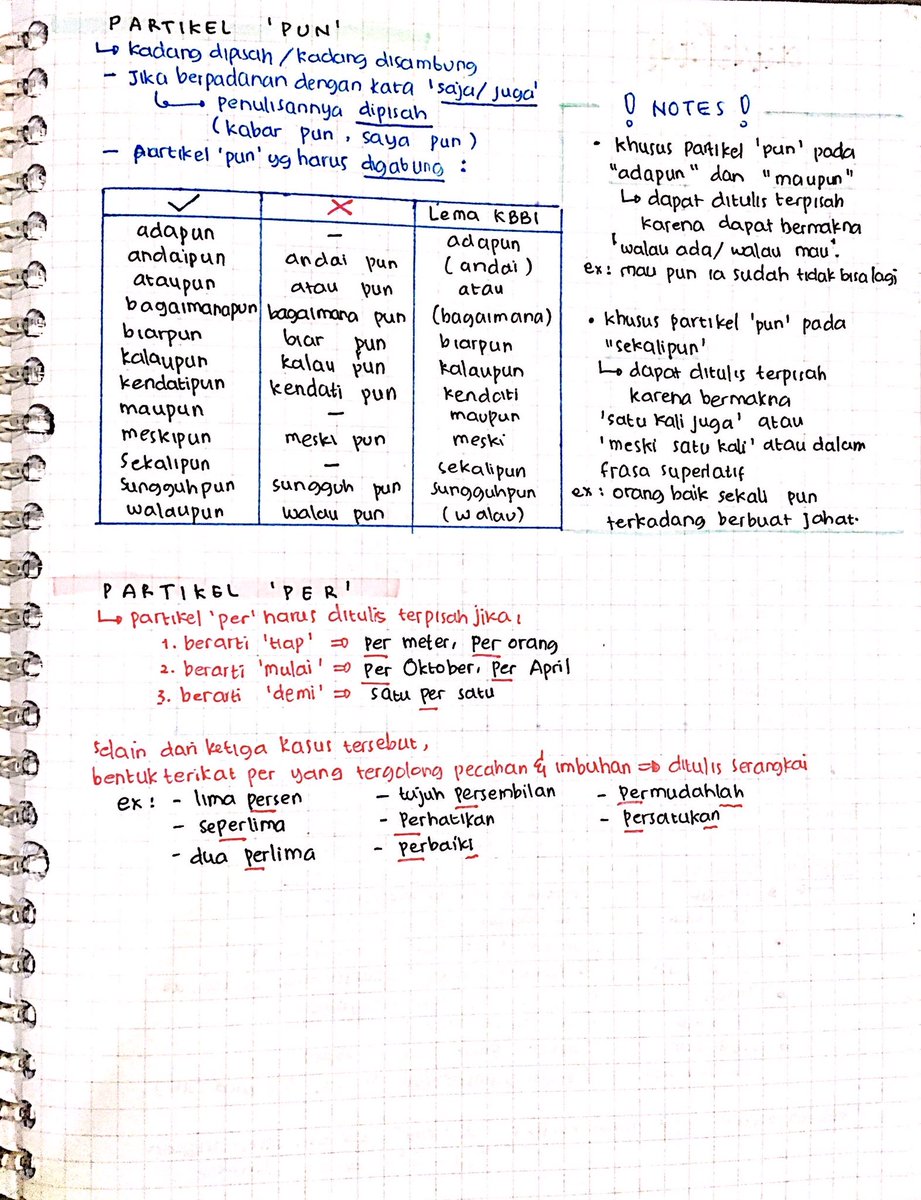 PARTIKEL 'PUN'
↳ kadang dipisah / kadang disambung
- Jika berpadanan dengan kata 'saja/juga'
↳ penulisannya dipisah
(kabar pun, saya pun)
- Partikel 'pun' yg harus digabung :
✓ ✗ Lema KBBI
adapun – adapun
andaipun andai pun (andai)
ataupun atau pun atau
bagaimanapun bagaimana pun (bagaimana)
biarpun biar pun biarpun
kalaupun kalau pun kalaupun
kendatipun kendati pun kendati
maupun – maupun
meskipun meski pun meski
sekalipun – sekalipun
sungguhpun sungguh pun sungguhpun
walaupun walau pun (walau)
! NOTES !
• khusus partikel 'pun' pada
"adapun" dan "maupun"
↳ dapat ditulis terpisah
karena dapat bermakna
'walau ada/walau mau'.
ex: mau pun ia sudah tidak bisa lagi
• khusus partikel 'pun' pada
"sekalipun'
↳ dapat ditulis terpisah
karena bermakna
'satu kali juga' atau
'meski satu kali' atau dalam
frasa superlatif
ex: orang baik sekali pun
terkadang berbuat jahat.
PARTIKEL 'PER'
↳ partikel 'per' harus ditulis terpisah jika,
1. berarti 'tiap' ⇒ per meter, per orang
2. berarti 'mulai' ⇒ per Oktober, per April
3. berarti 'demi' ⇒ satu per satu
Selain dari ketiga kasus tersebut,
bentuk terikat per yang tergolong pecahan & imbuhan ⇒ ditulis serangkai
ex: - lima persen - tujuh persembilan - permudahlah
- seperlima - Perhatikan - persatukan
- dua perlima - perbaiki